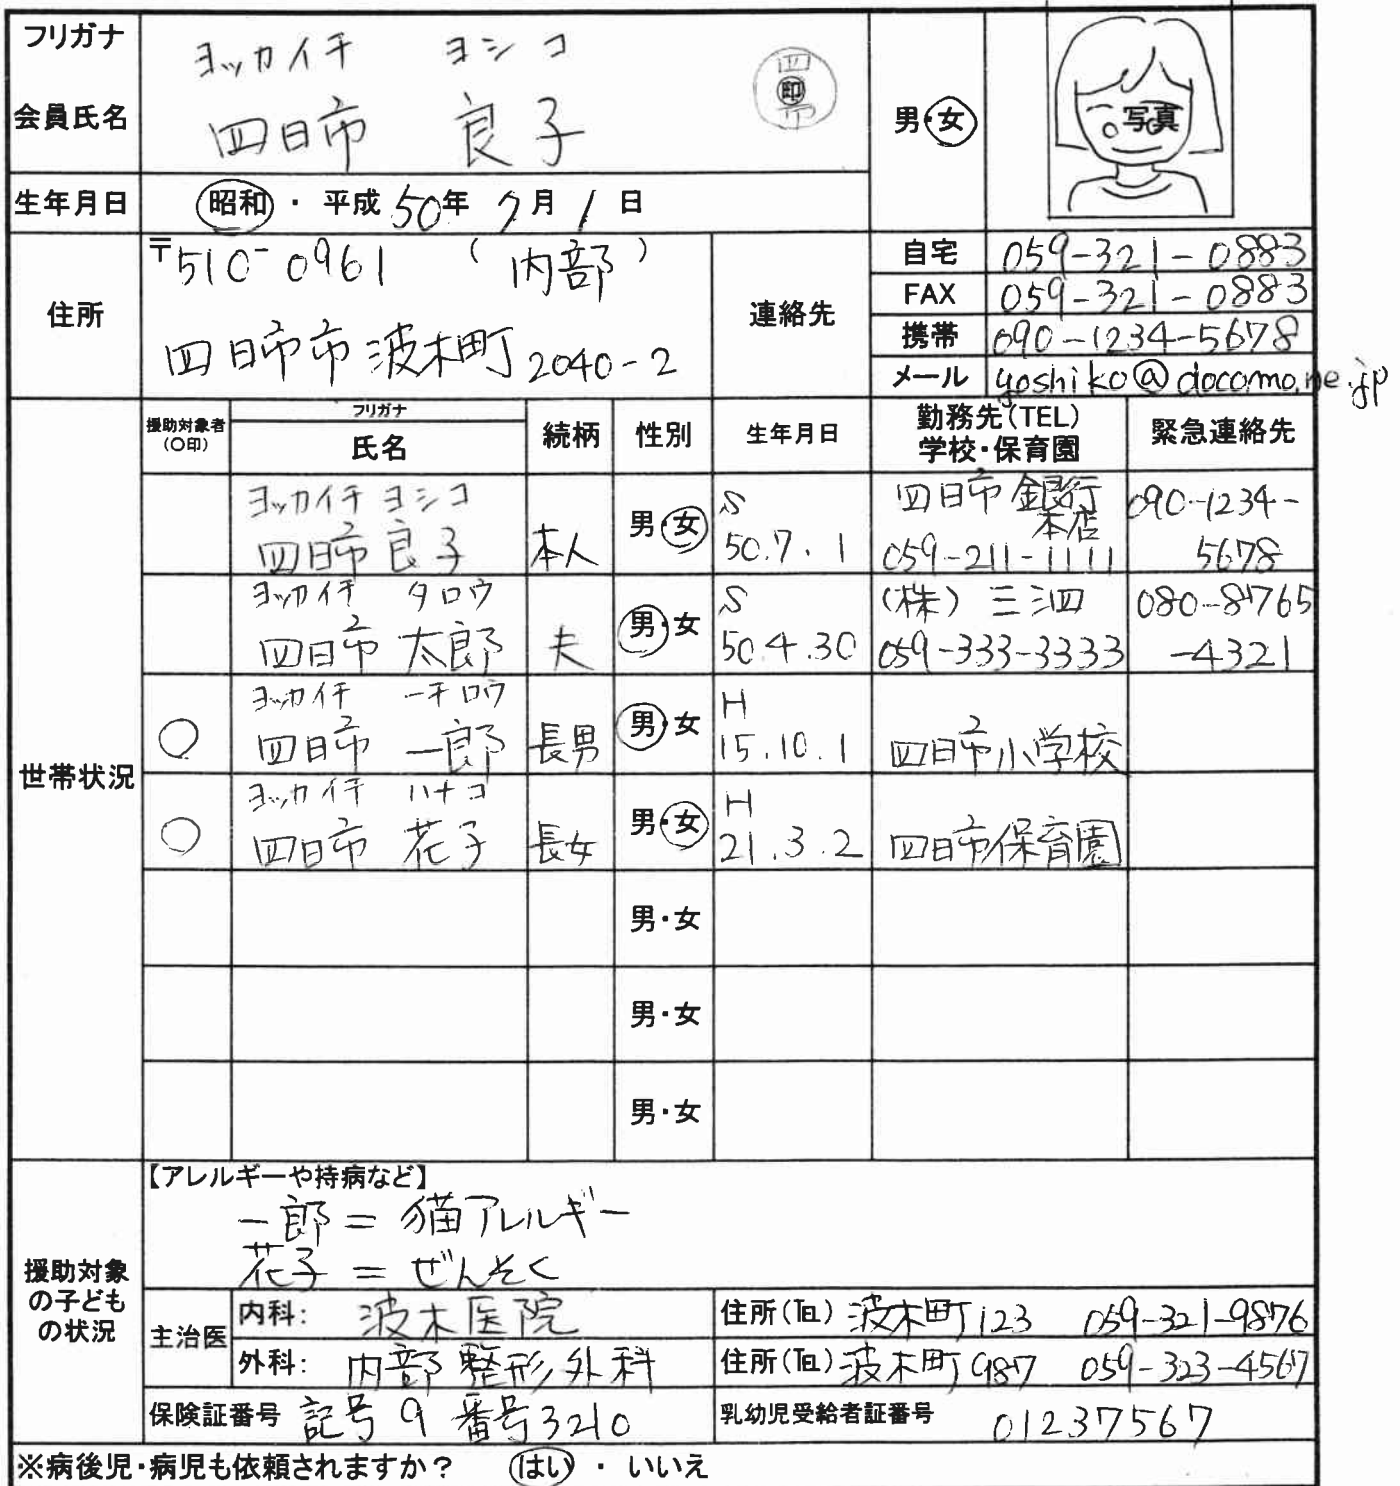 フリガナ ヨッカイチ ヨシコ
会員氏名 四日市 良子 四 印 市
男・女
写真
生年月日 昭和・平成 50年 7月 1日
住所 〒510-0961 (内部)
四日市市波木町2040-2
連絡先
自宅 059-321-0883
FAX 059-321-0883
携帯 090-1234-5678
メール yoshiko@docomo.ne.jp
世帯状況
援助対象者(○印) フリガナ 氏名 続柄 性別 生年月日 勤務先(TEL) 学校・保育園 緊急連絡先
ヨッカイチ ヨシコ
四日市 良子 本人 男・女 S 50.7.1 四日市銀行本店 059-211-1111 090-1234-5678
ヨッカイチ タロウ
四日市 太郎 夫 男・女 S 50.4.30 (株)三泗 059-333-3333 080-8765-4321
ヨッカイチ イチロウ
○ 四日市 一郎 長男 男・女 H 15.10.1 四日市小学校
ヨッカイチ ハナコ
○ 四日市 花子 長女 男・女 H 21.3.2 四日市保育園
男・女
男・女
男・女
援助対象の子どもの状況
【アレルギーや持病など】
一郎=猫アレルギー
花子=ぜんそく
主治医
内科: 波木医院 住所(TEL) 波木町123 059-321-9876
外科: 内部整形外科 住所(TEL) 波木町987 059-323-4567
保険証番号 記号9 番号3210 乳幼児受給者証番号 01237567
※病後児・病児も依頼されますか? はい・いいえ